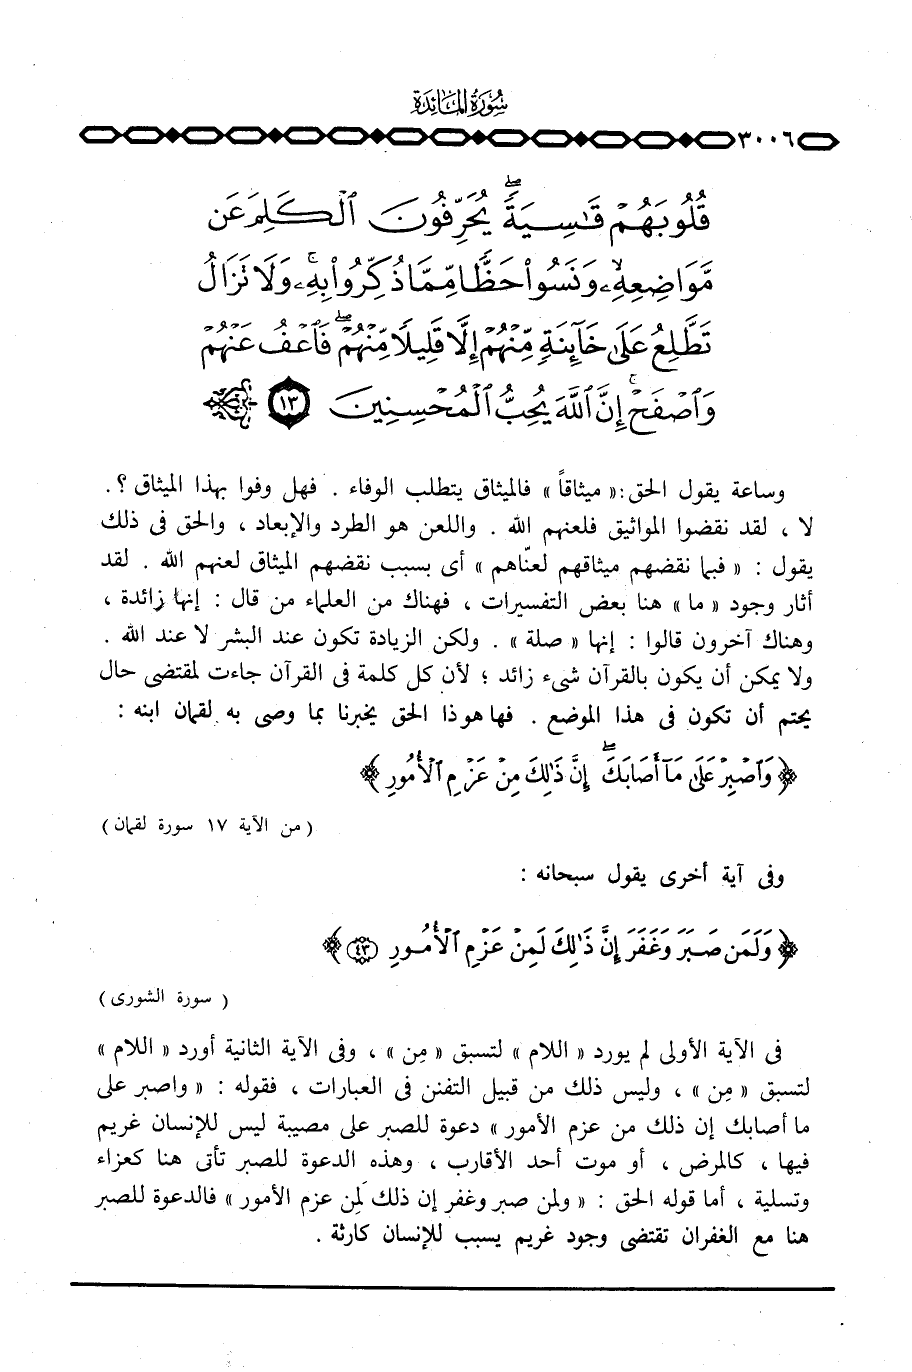 سُورَةُ المَائِدَة
٣٠٠٦
قُلُوبَهُمْ قَٰسِيَةً ۖ يُحَرِّفُونَ ٱلْكَلِمَ عَن
مَّوَاضِعِهِۦ ۙ وَنَسُوا۟ حَظًّا مِّمَّا ذُكِّرُوا۟ بِهِۦ ۚ وَلَا تَزَالُ
تَطَّلِعُ عَلَىٰ خَآئِنَةٍ مِّنْهُمْ إِلَّا قَلِيلًا مِّنْهُمْ ۖ فَٱعْفُ عَنْهُمْ
وَٱصْفَحْ ۚ إِنَّ ٱللَّهَ يُحِبُّ ٱلْمُحْسِنِينَ ١٣
وساعة يقول الحق :« ميثاقاً » فالميثاق يتطلب الوفاء . فهل وفوا بهذا الميثاق ؟ .
لا ، لقد نقضوا المواثيق فلعنهم الله . واللعن هو الطرد والإبعاد ، والحق فى ذلك
يقول : « فبما نقضهم ميثاقهم لعنّاهم » أى بسبب نقضهم الميثاق لعنهم الله . لقد
أثار وجود « ما » هنا بعض التفسيرات ، فهناك من العلماء من قال : إنها زائدة ،
وهناك آخرون قالوا : إنها « صلة » . ولكن الزيادة تكون عند البشر لا عند الله .
ولا يمكن أن يكون بالقرآن شىء زائد ؛ لأن كل كلمة فى القرآن جاءت لمقتضى حال
يحتم أن تكون فى هذا الموضع . فها هو ذا الحق يخبرنا بما وصى به لقمان ابنه :
﴿ وَٱصْبِرْ عَلَىٰ مَآ أَصَابَكَ ۖ إِنَّ ذَٰلِكَ مِنْ عَزْمِ ٱلْأُمُورِ ﴾
( من الآية ١٧ سورة لقمان )
وفى آية أخرى يقول سبحانه :
﴿ وَلَمَن صَبَرَ وَغَفَرَ إِنَّ ذَٰلِكَ لَمِنْ عَزْمِ ٱلْأُمُورِ ٤٣ ﴾
( سورة الشورى )
فى الآية الأولى لم يورد « اللام » لتسبق « مِن » ، وفى الآية الثانية أورد « اللام »
لتسبق « مِن » ، وليس ذلك من قبيل التفنن فى العبارات ، فقوله : « واصبر على
ما أصابك إن ذلك من عزم الأمور » دعوة للصبر على مصيبة ليس للإنسان غريم
فيها ، كالمرض ، أو موت أحد الأقارب ، وهذه الدعوة للصبر تأتى هنا كعزاء
وتسلية ، أما قوله الحق : « ولمن صبر وغفر إن ذلك لَمِن عزم الأمور » فالدعوة للصبر
هنا مع الغفران تقتضى وجود غريم يسبب للإنسان كارثة .